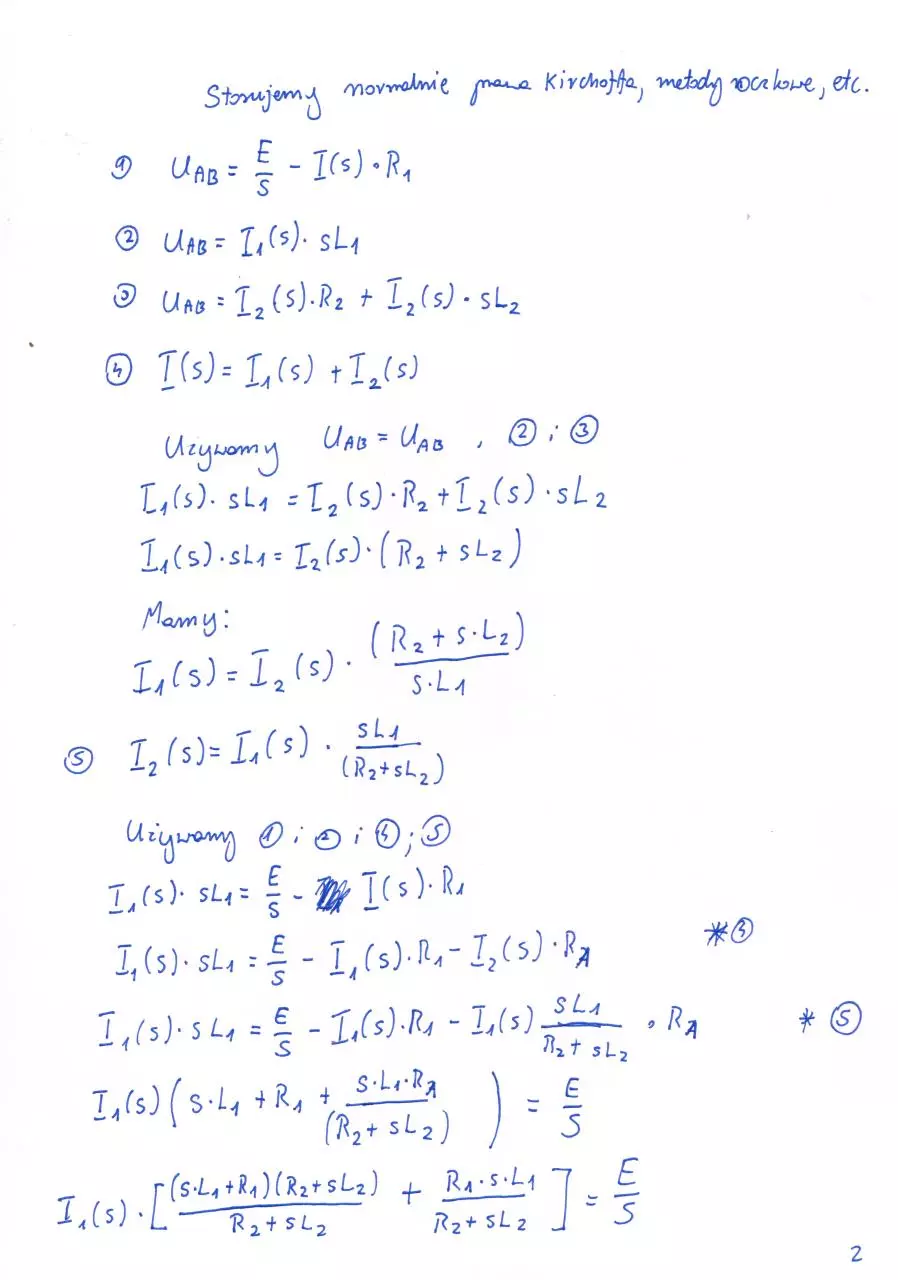 Stosujemy normalnie prawa Kirchoffa, metody oczkowe, etc.
① U_AB = E/S - I(s)·R₁
② U_AB = I₁(s)· sL₁
③ U_AB = I₂(s)·R₂ + I₂(s)·sL₂
④ I(s) = I₁(s) + I₂(s)
Używamy U_AB = U_AB , ② i ③
I₁(s)· sL₁ = I₂(s)·R₂ + I₂(s)·sL₂
I₁(s)·sL₁ = I₂(s)·(R₂ + sL₂)
Mamy:
I₁(s) = I₂(s) · (R₂ + S·L₂)/(S·L₁)
⑤ I₂(s) = I₁(s) · sL₁/(R₂+sL₂)
Używamy ① i ② i ④ i ⑤
I₁(s)· sL₁ = E/S - I(s)·R₁
I₁(s)·sL₁ = E/S - I₁(s)·R₁ - I₂(s)·R₁ *④
I₁(s)·sL₁ = E/S - I₁(s)·R₁ - I₁(s) SL₁/(R₂+sL₂) · R₁ * ⑤
I₁(s)(S·L₁ + R₁ + S·L₁·R₁/(R₂+sL₂)) = E/S
I₁(s)·[(S·L₁+R₁)(R₂+sL₂)/(R₂+sL₂) + R₁·s·L₁/(R₂+sL₂)] = E/S
2